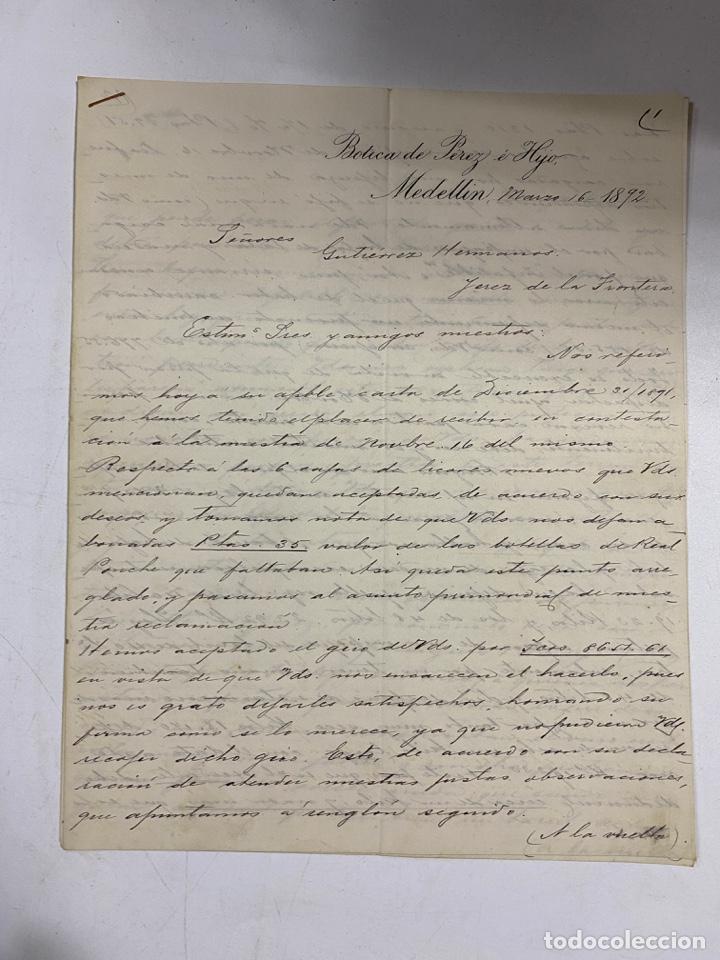 Botica de Pérez é Hijo.
Medellín, Marzo 16 - 1892
Señores
Gutiérrez Hermanos.
Jerez de la Frontera.
Estimos Sres y amigos nuestros:
Nos referi-
mos hoy a su apble carta de Diciembre 31/1891,
que hemos tenido el placer de recibir en contesta-
cion á la nuestra de Novbre. 16 del mismo.
Respecto á las 6 cajas de licores nuevos que Vds.
mencionan, quedan aceptadas de acuerdo con sus
deseos, y tomamos nota de que Vds. nos dejan a-
bonadas Ptas. 35 valor de las botellas de Real
Ponche que faltaban. Así queda este punto arre-
glado, y pasamos al asunto primordial de nues-
tra reclamación.
Hemos aceptado el giro de Vds. por
en vista de que Vds. nos encarecen el hacerlo, pues
nos es grato dejarles satisfechos, honrando su
firma como se lo merece, ya que no pudieron Vds.
recojer dicho giro. Esto, de acuerdo con su decla-
ración de atender nuestras justas observaciones,
que apuntamos á renglón seguido.
(A la vuelta).
todocoleccion
todocoleccion.net